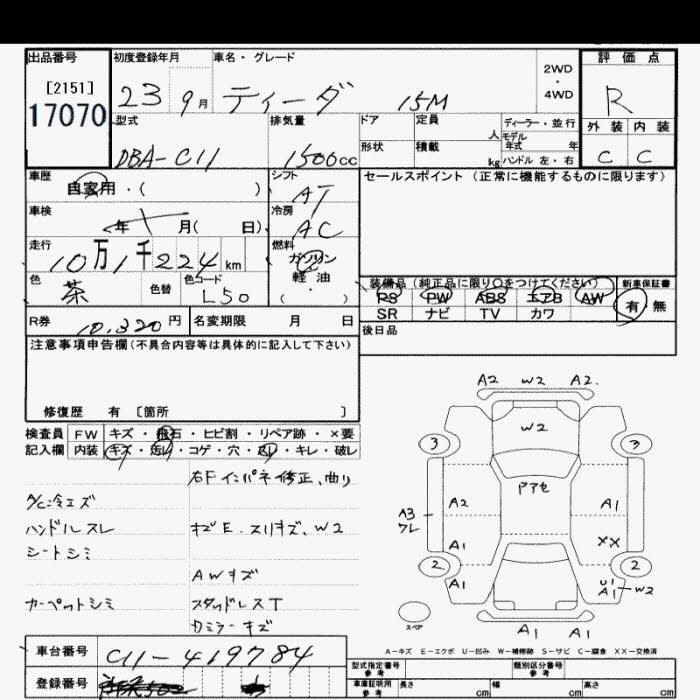 出品番号 初度登録年月 車名・グレード 2WD・4WD 評価点
[2151]
17070 23 9月 ティーダ 15M R
型式 排気量 ドア 定員 人 ディーラー・並行 外装 内装
モデル年式 年
DBA-C11 1500cc 形状 積載 kg ハンドル 左・右 C C
車歴 自家用・( ) シフト AT セールスポイント(正常に機能するものに限ります)
車検 年 月( 日) 冷房 AC
走行 10万1千224km 燃料 ガソリン・軽油・( )
色 茶 色替 色コード L50
装備品(純正品に限り○をつけてください) 新車保証書
PS PW ABS エアB AW 有・無
SR ナビ TV カワ
R券 10,320円 名変期限 月 日 後日品
注意事項申告欄(不具合内容等は具体的に記入して下さい)
修復歴 有 [箇所 ]
検査員 FW キズ・飛石・ヒビ割・リペア跡・×要
記入欄 内装 キズ・汚レ・コゲ・穴・凹・キレ・破レ
右Fインパネ修正、曲り
A/C冷エズ
ハンドルスレ キズE、スリキズ、W2
シートシミ
AWキズ
カーペットシミ スタッドレスT
カミラーキズ
A2 W2 A2.
W2
3 3
アアセ
A3 A2 A1
ワレ
A1 XX
2 2
A1 U1
A1 W2
スペア
A1 A1
A-キズ E-エクボ U-凹み W-補修跡 S-サビ C-腐食 XX-交換済
車台番号 C11-419784
登録番号
型式指定番号 参考 類別区分番号 参考
車庫証明用 参考 長さ cm 幅 cm 高さ cm